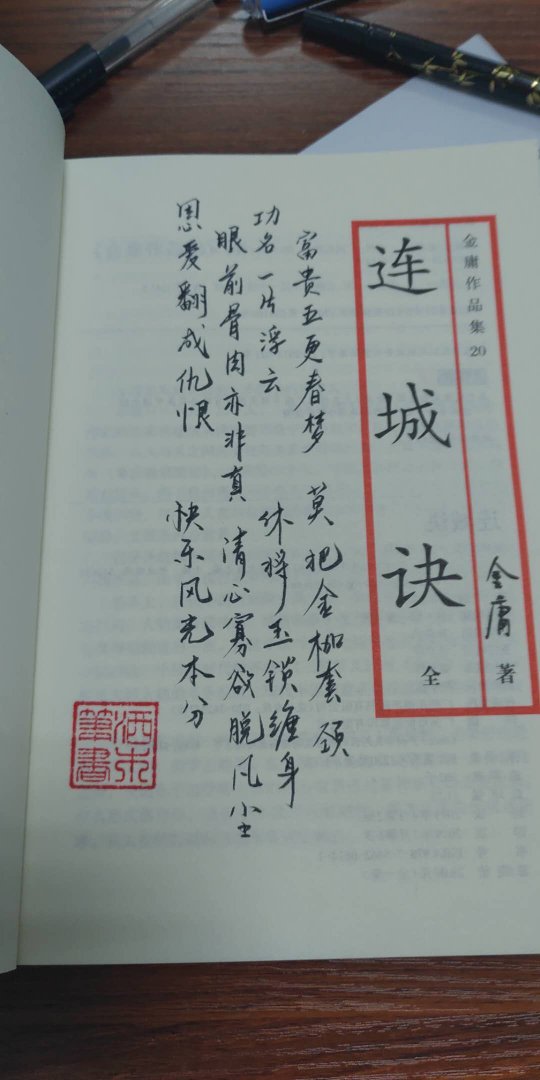 金庸作品集20
金庸 著
连城诀
全
富贵五更春梦 莫把金枷套颈
功名一片浮云 休将玉锁缠身
眼前骨肉亦非真 清心寡欲脱凡尘
恩爱翻成仇恨 快乐风光本分